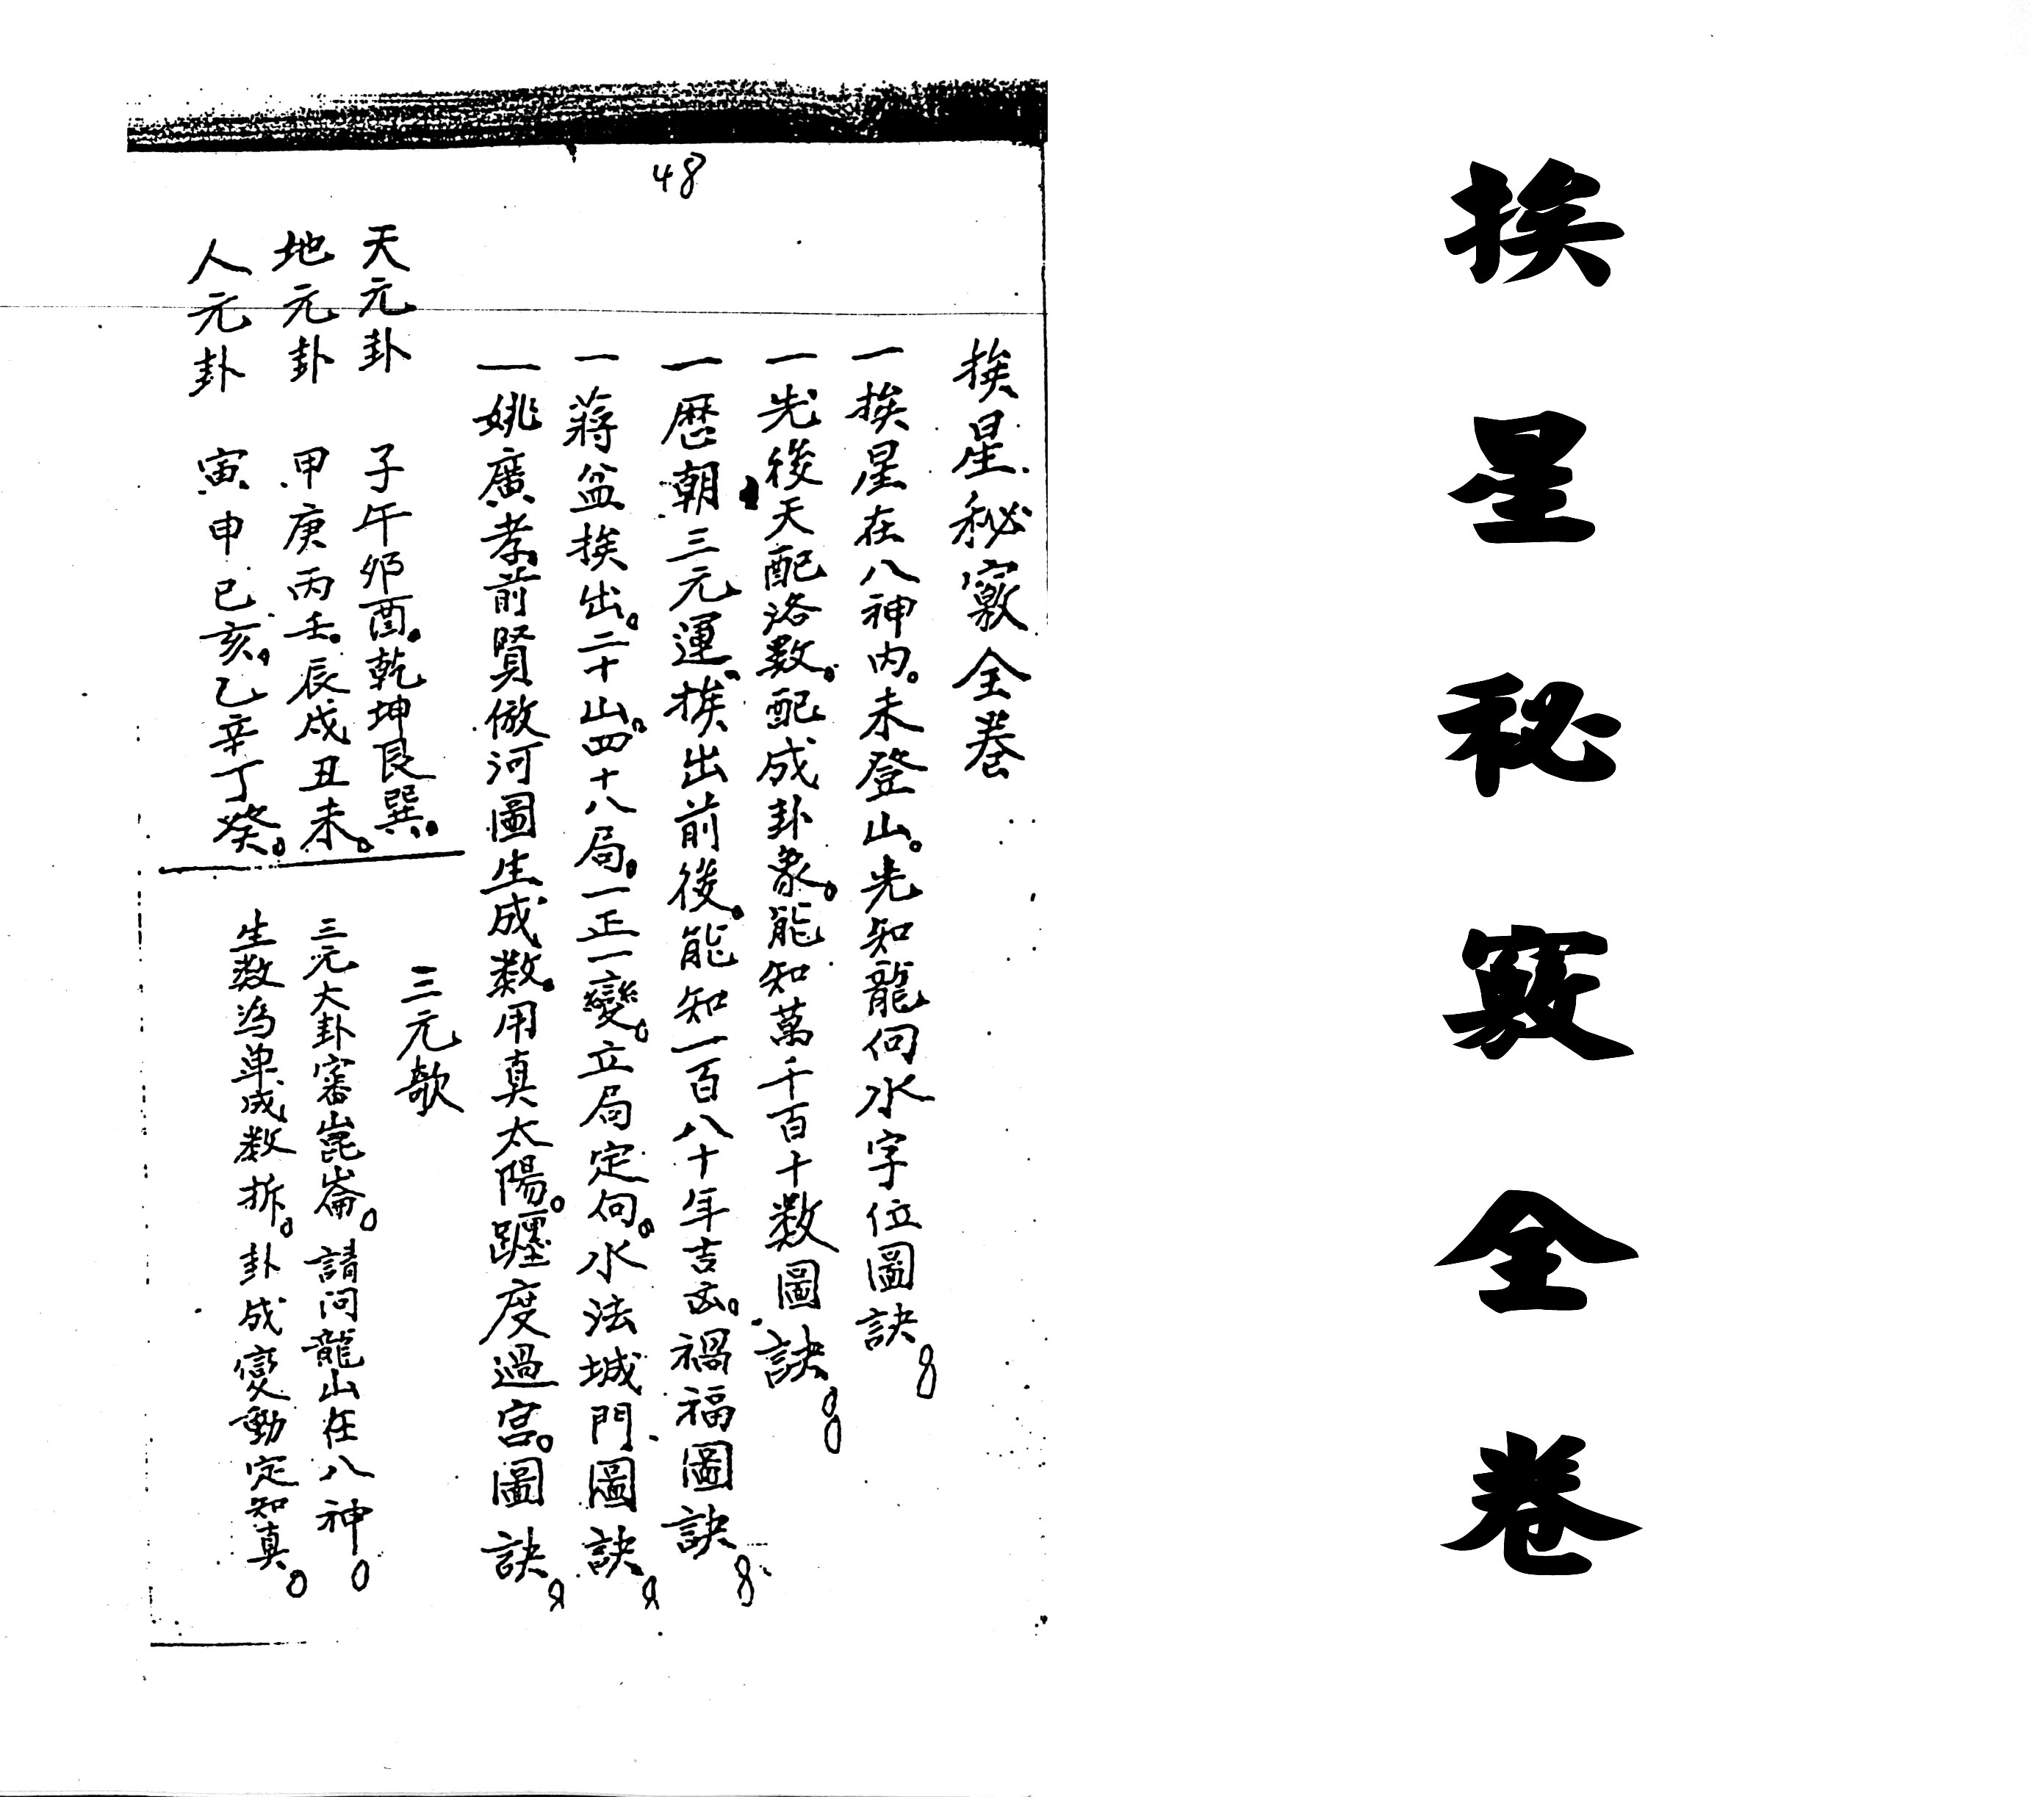 挨星秘竅全卷
48
挨星秘竅全卷
一挨星在八神内。未登山。先知龍向水字位圖訣
一先後天配洛數。配成卦象。能知萬千百十数圖訣
一歷朝三元運。挨出前後。能知一百八十年吉凶。禍福圖訣
一蔣盆挨出。二十山。四十八局。一正一變。立局定向。水法城門圖訣
一姚廣孝前賢倣河圖生成数。用真太陽。躔度過宮。圖訣
三元歌
天元卦 子午卯酉。乾坤艮巽。
地元卦 甲庚丙壬。辰戌丑未。
人元卦 寅申巳亥。乙辛丁癸。
三元大卦審崑崙。請问龍山在八神。
生数為单成数拆。卦成變動定知真。